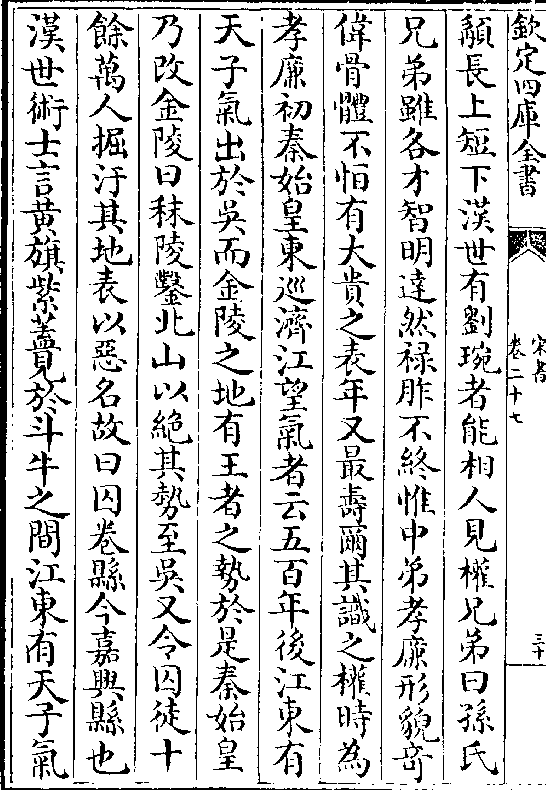 欽定四庫全書
宋書
卷二十七
三十
顙長上短下漢世有劉琬者能相人見權兄弟曰孫氏
兄弟雖各才智明達然禄胙不終惟中弟孝廉形貌竒
偉骨體不恒有大貴之表年又最壽爾其識之權時為
孝廉初秦始皇東巡濟江望氣者云五百年後江東有
天子氣出於吳而金陵之地有王者之勢於是秦始皇
乃改金陵曰秣陵鑿北山以絶其勢至吳又令囚徒十
餘萬人掘汙其地表以惡名故曰囚卷縣今嘉興縣也
漢世術士言黄旗紫蓋見於斗牛之間江東有天子氣